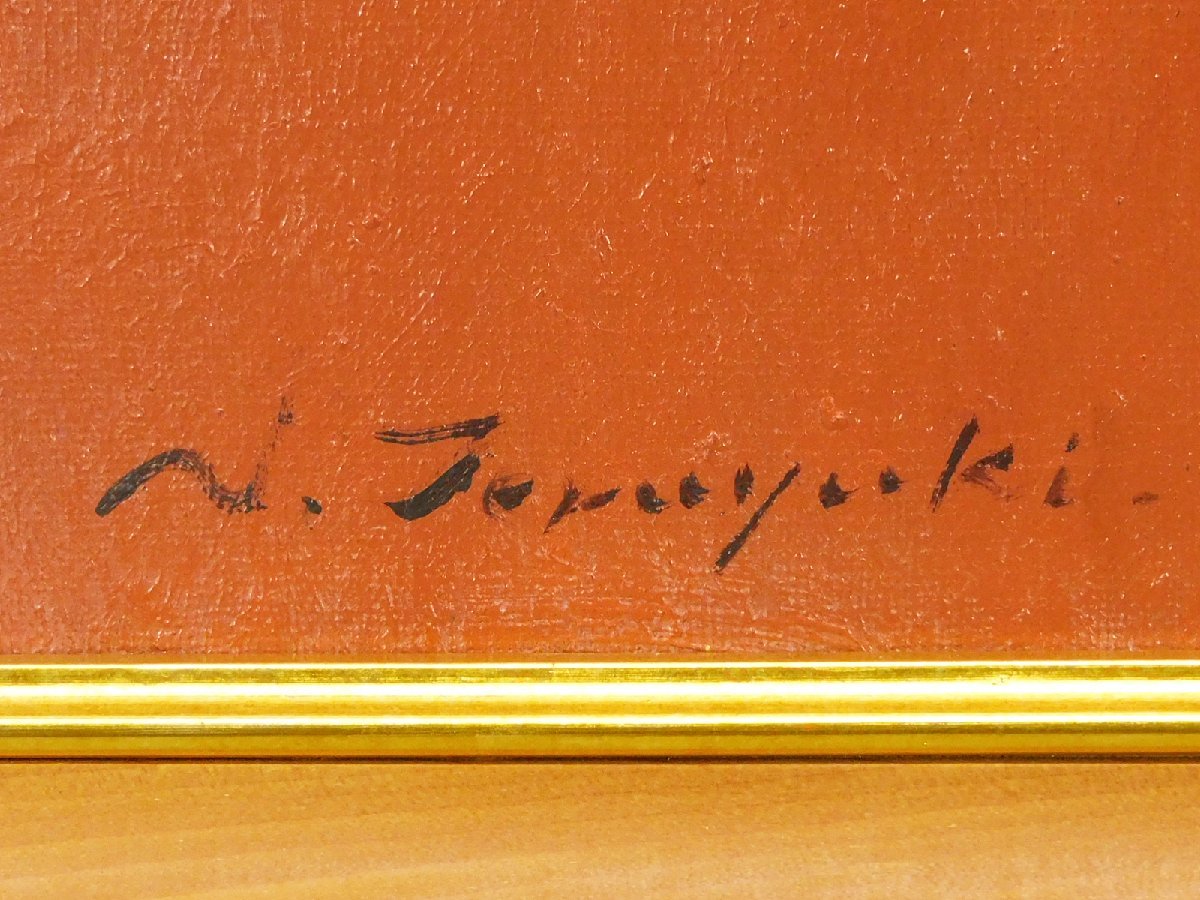 N. Teruyuki.